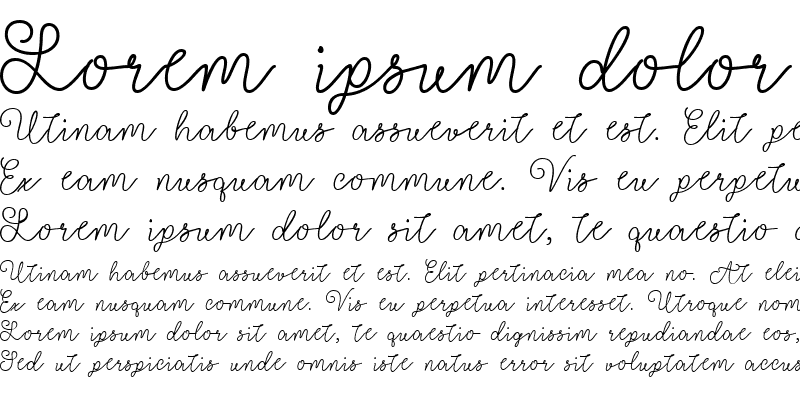 Lorem ipsum dolor
Utinam habemus assueverit et est. Elit pe
Ex eam nusquam commune. Vis eu perpetu
Lorem ipsum dolor sit amet, te quaestio
Utinam habemus assueverit et est. Elit pertinacia mea no. At elei
Ex eam nusquam commune. Vis eu perpetua interesset. Utroque nom
Lorem ipsum dolor sit amet, te quaestio dignissim repudiandae eos,
Sed ut perspiciatis unde omnis iste natus error sit voluptatem accus